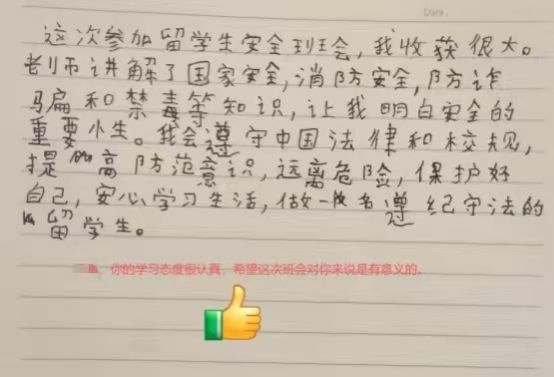 这次参加留学生安全班会，我收获很大。
老师讲解了国家安全，消防安全，防诈
骗和禁毒等知识，让我明白安全的
重要小生。我会遵守中国法律和校规，
提高防范意识，远离危险，保护好
自己，安心学习生活，做一名遵纪守法的
留学生。
你的学习态度很认真，希望这次班会对你来说是有意义的。